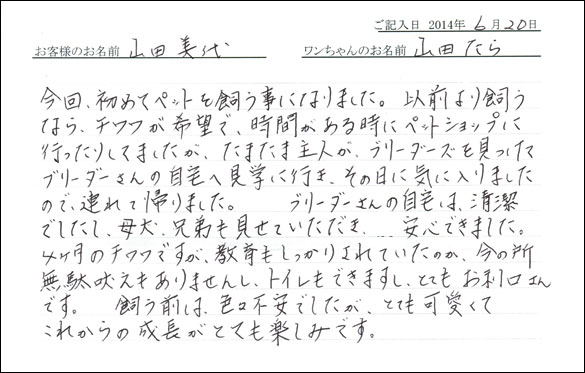 ご記入日 2014年 6月20日
お客様のお名前 山田美代 ワンちゃんのお名前 山田たら
今回、初めてペットを飼う事になりました。 以前より飼う
なら、チワワが希望で、時間がある時にペットショップに
行ったりしてましたが、たまたま主人が、ブリーダーズを見つけて
ブリーダーさんの自宅へ見学に行き、その日に気に入りました
ので、連れて帰りました。 ブリーダーさんの自宅は、清潔
でしたし、母犬、兄弟も見せていただき、安心できました。
4ヶ月のチワワですが、教育もしっかりされていたのか、今の所
無駄吠えもありませんし、トイレもできますし、とてもお利口さん
です。 飼う前は、色々不安でしたが、とても可愛くて
これからの成長がとても楽しみです。